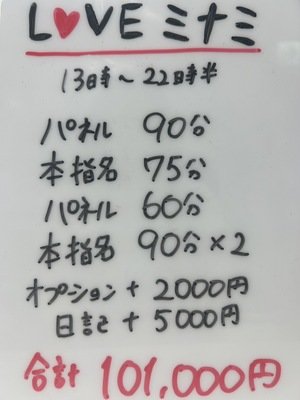 L♥VEミナミ
13時〜22時半
パネル 90分
本指名 75分
パネル 60分
本指名 90分×2
オプション+2000円
日記+5000円
合計 101,000円